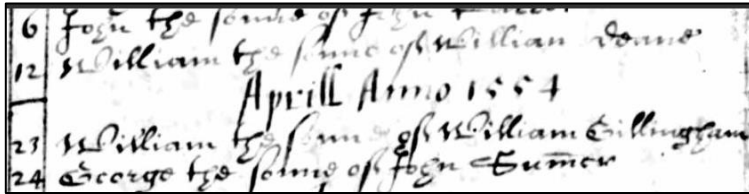 6 John the sonne of John
12 William the sonne of William Deane
Aprill Anno 1554
23 William the sonne of William Gillingham
24 George the sonne of John Sum̄er